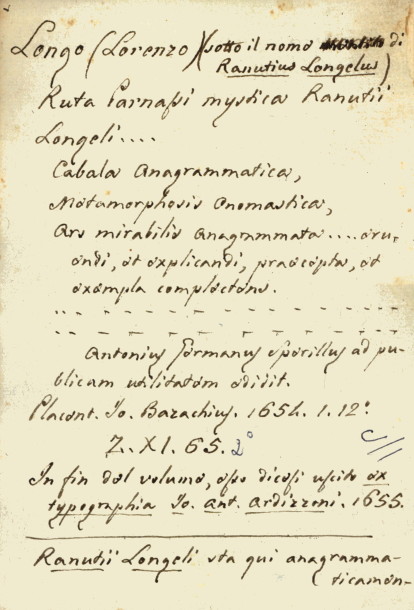 Longo (Lorenzo) (sotto il nome di
Ranutius Longelus)
Ruta Parnassi mystica Ranutii
Longeli....
Cabala Anagrammatica,
Metamorphosis Onomastica,
Ars mirabilis Anagrammata .... eru-
endi, et explicandi, praecepta, et
exempla complectens.
Antonius Germanus Sperillus ad pu-
blicam utilitatem edidit.
Placent. Io. Bazachius. 1654. 1. 12°.
Z. XI. 65. 2°
In fin del volume, esso dicesi uscito ex
typographia Io. Ant. Ardizzoni. 1655.
Ranutii Longeli sta qui anagramma-
ticamen-